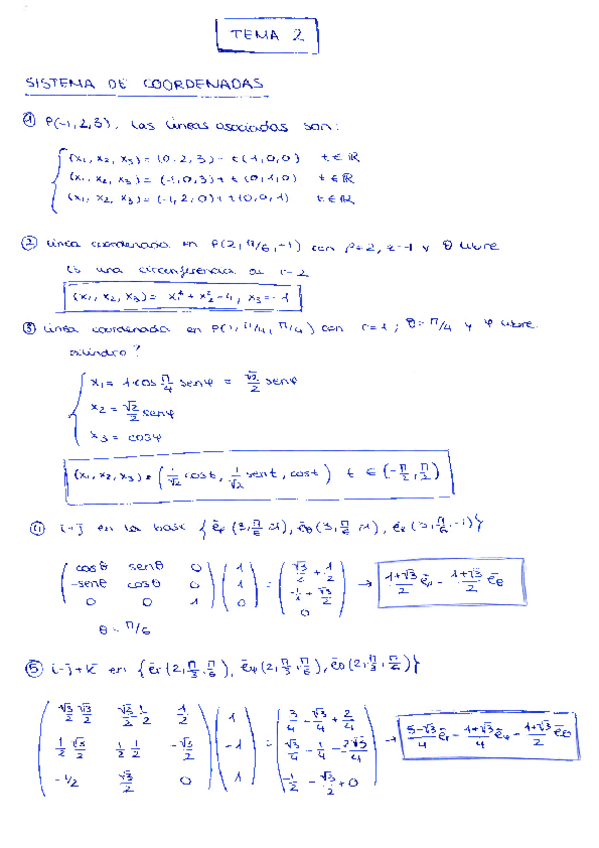 TEMA 2
SISTEMA DE COORDENADAS
① P(-1,2,3). Las líneas asociadas son:
(x₁, x₂, x₃) = (0,2,3) + t(1,0,0) t ∈ ℝ
(x₁, x₂, x₃) = (-1,0,3) + t(0,1,0) t ∈ ℝ
(x₁, x₂, x₃) = (-1,2,0) + t(0,0,1) t ∈ ℝ
② Línea coordenada en P(2, π/6, -1) con ρ=2, z=-1 y θ libre
Es una circunferencia de r=2
(x₁, x₂, x₃) = x₁² + x₂² = 4, x₃ = -1
③ Línea coordenada en P(1, π/4, π/4) con r=1; θ = π/4 y φ libre.
cilindro?
x₁ = 1·cos π/4 senφ = √2/2 senφ
x₂ = √2/2 senφ
x₃ = cosφ
(x₁, x₂, x₃) = (1/√2 cost, 1/√2 sent, cost) t ∈ (-π/2, π/2)
④ i+j en la base {ēr (3, π/6, -1), ēθ (3, π/6, -1), ēz (3, π/6, -1)}
( cosθ senθ 0 ) ( 1 ) ( √3/2 + 1/2 )
( -senθ cosθ 0 ) ( 1 ) = ( -1/2 + √3/2 ) → 1+√3/2 ēr - 1+√3/2 ēθ
( 0 0 1 ) ( 0 ) ( 0 )
θ = π/6
⑤ i-j+k en {ēr(2, π/3, π/6), ēφ(2, π/3, π/6), ēθ(2, π/3, π/6)}
( √3/2 √3/2 √3/2 1/2 1/2 ) ( 1 ) ( 3/4 - √3/4 + 2/4 )
( 1/2 √3/2 1/2 1/2 -√3/2 ) ( -1 ) = ( √3/4 - 1/4 - 2√3/4 ) → 5-√3/4 ēr - 1+√3/4 ēφ - 1+√3/2 ēθ
( -1/2 √3/2 0 ) ( 1 ) ( -1/2 - √3/2 + 0 )